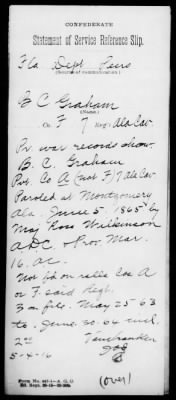 CONFEDERATE
Statement of Service Reference Slip.
Fla Dept Pens
(Source of communication.)
B C Graham
(Name.)
Co. F 7 Reg't Ala Cav
Pr war records show
B. C. Graham
Pvt. Co A (not F) 7 Ala Cav.
Paroled at Montgomery
Ala. June 5. 1865 by
Maj Ross Wilkinson
ADC & Pro. Mar.
16. AC.
Not f'd on rolls Cos A
or F. said Regt.
3 on file. May 25 63
to June 30.64 incl.
5-4-16
Form No. 447-1—A. G. O.
(over)